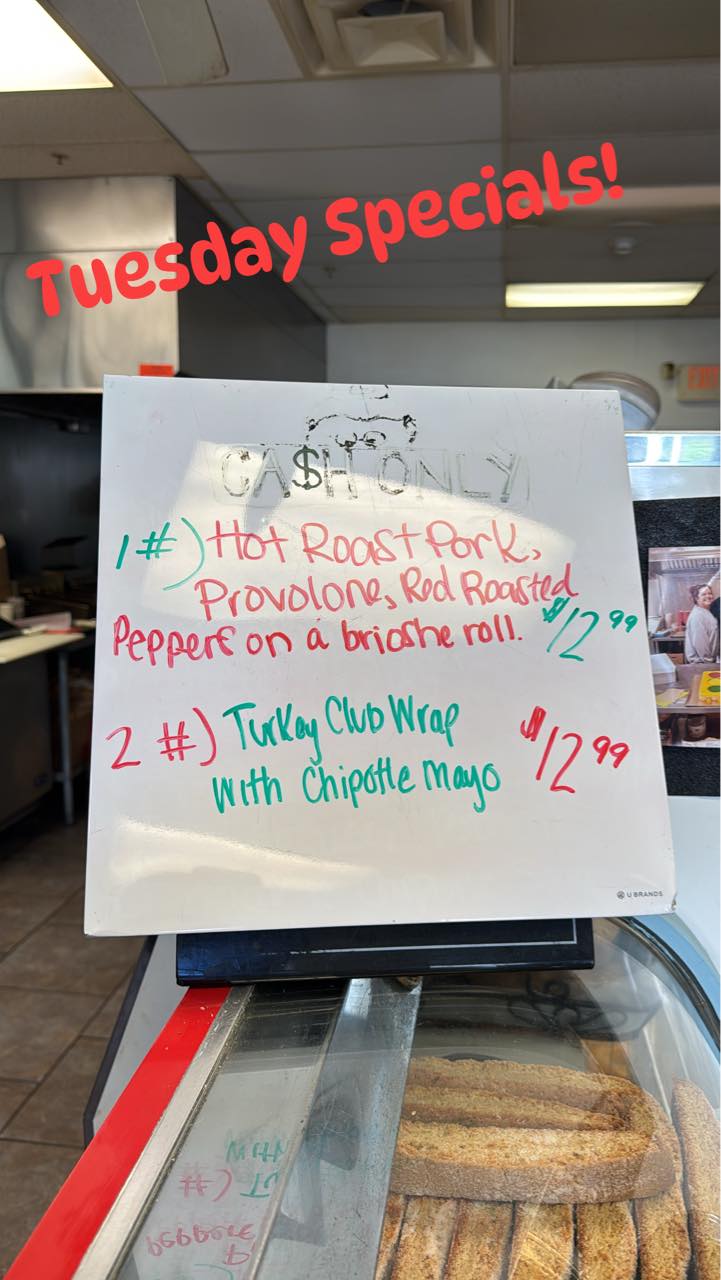 Tuesday Specials!
EXIT
CA$H ONLY
1#) Hot Roast Pork,
Provolone, Red Roasted
Peppers on a brioshe roll. $12.99
2 #) Turkey Club Wrap
With Chipotle Mayo $12.99
U BRANDS